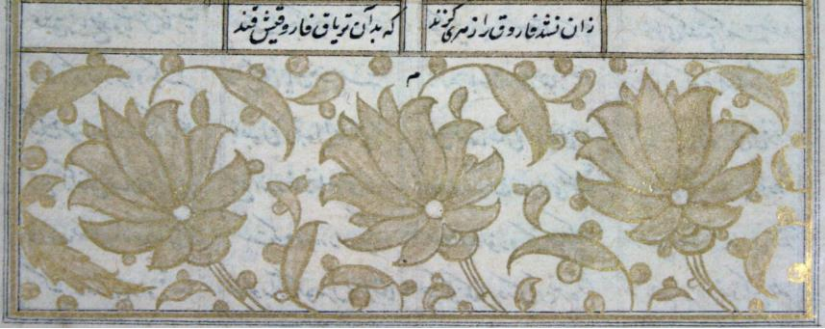 زان نشد فاروق را زهری گزند که بد آن تریاق فاروقیش قند
م